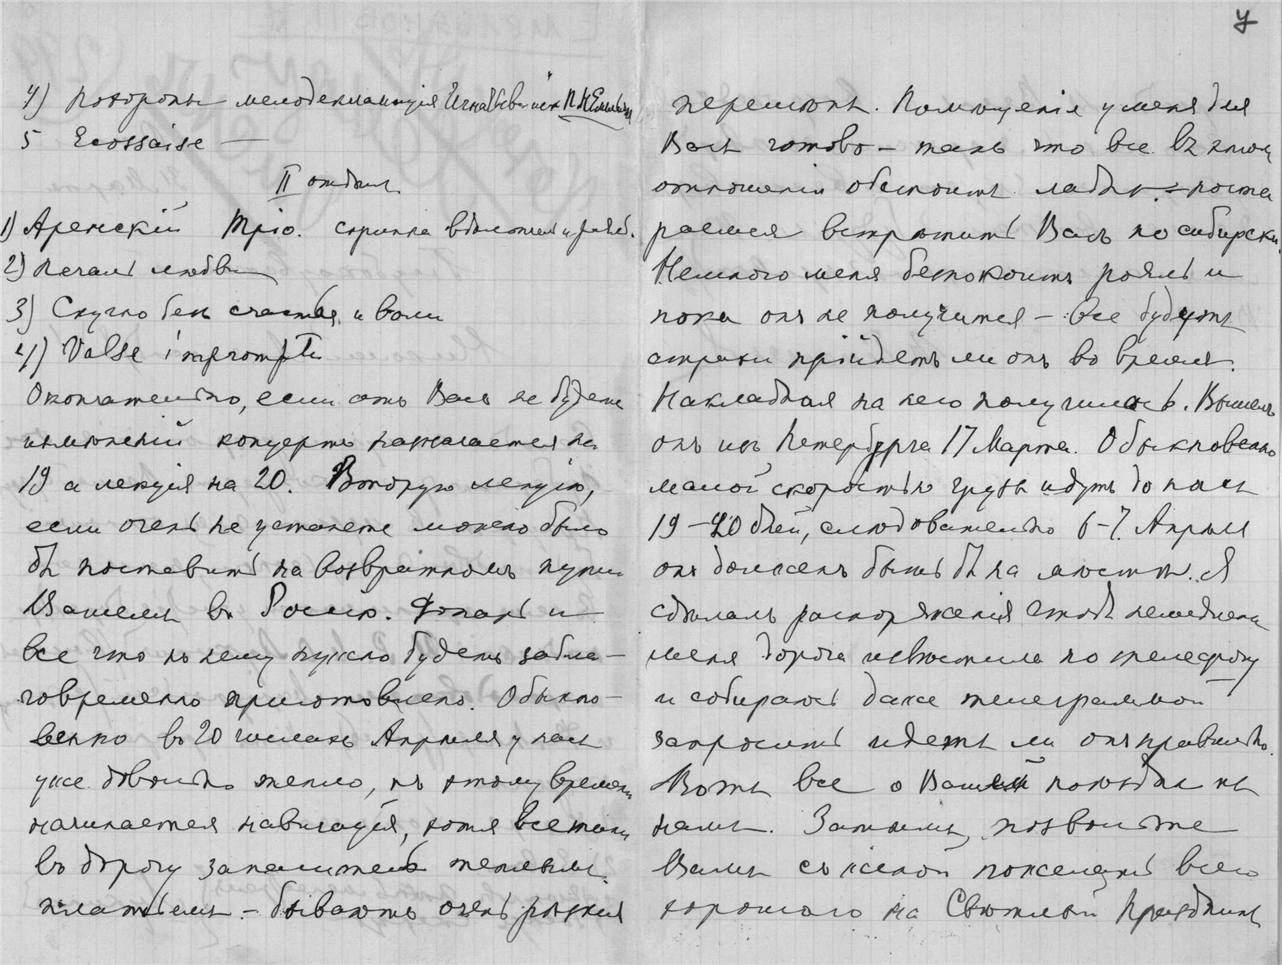 4) Похороны мелодекламація
5 Ecossaise —
II отдѣл
1) Аренскій Тріо. скрипка віолончель и рояль.
2) Печаль любви
3) Скучно безъ счастья и воли
4) Valse impromptu
Окончательно, если отъ Васъ не будетъ
измѣненій концертъ назначается на
19 а лекція на 20. Вторую лекцію,
если очень не устанете можно было
бы поставить на возвратномъ пути
Вашемъ въ Россію. Фонарь и
все что къ нему нужно будетъ забла-
говременно приготовлено. Обыкно-
венно въ 20 числахъ Апрѣля у насъ
уже довольно тепло, къ этому времени
начинается навигація, хотя все таки
въ дорогу запаситесь теплымъ
платьемъ – бываютъ очень рѣзкія
7
перемѣны. Помѣщеніе у меня для
Васъ готово – такъ что все въ этомъ
отношеніи обстоитъ ладно – поста
раемся встрѣтить Васъ по сибирски.
Немного меня безпокоитъ рояль и
пока онъ не получится – все будутъ
страхи прійдетъ ли онъ во время.
Накладная на него получилась. Вышелъ
онъ изъ Петербурга 17 Марта. Обыкновенно
малой скоростью грузы идутъ до насъ
19–20 дней, слѣдовательно 6–7. Апрѣля
онъ долженъ быть бы на мѣстѣ. Я
сдѣлалъ распоряженія чтобъ немедленно
меня дорога извѣстила по телефону
и собираюсь даже телеграммой
запросить идетъ ли онъ правильно.
Вотъ все о Вашей поѣздкѣ къ
намъ. Затѣмъ, позвольте
Вамъ съ женой пожелать всего
хорошаго на Свѣтлый Праздникъ